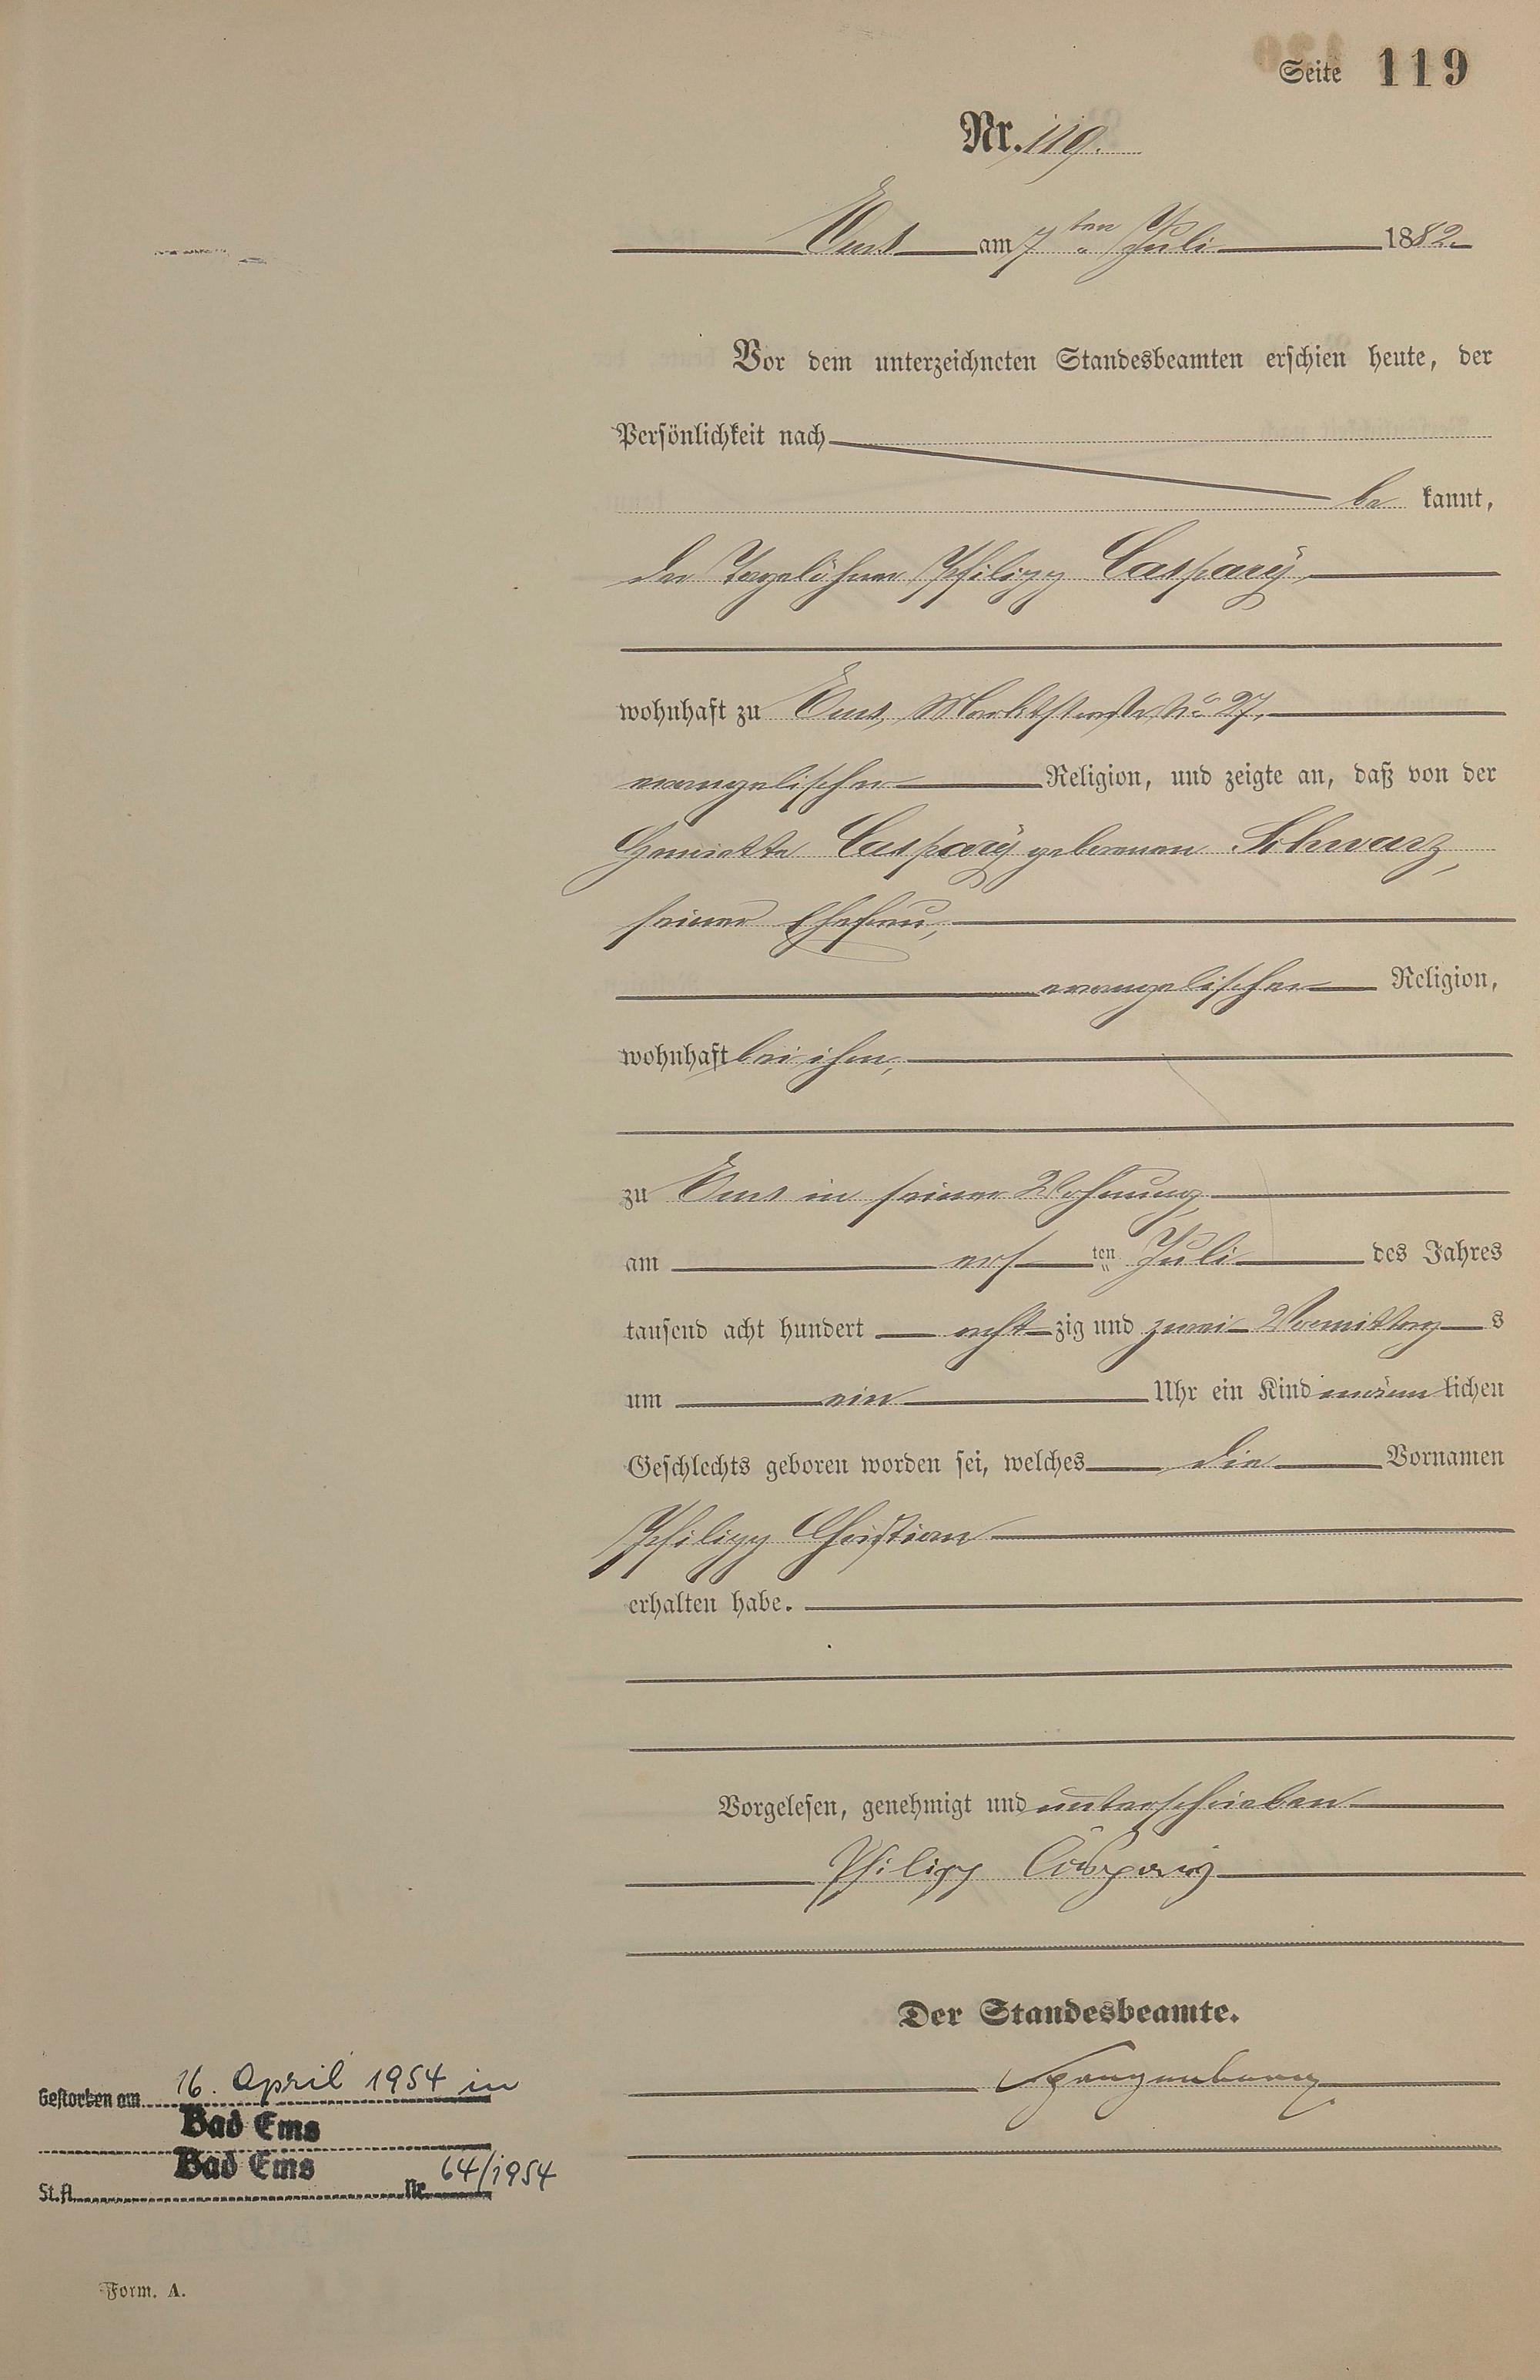 Seite 119
Nr. 119.
Ems am 7ten Juli 1882.
Vor dem unterzeichneten Standesbeamten erschien heute, der
Persönlichkeit nach
be kannt,
der Tagelöhner Philipp Caspary
wohnhaft zu Ems, Marktstraße No 27,
evangelischer Religion, und zeigte an, daß von der
Henriette Caspary geborenen Schwarz,
seiner Ehefrau,
evangelischer Religion,
wohnhaft bei ihm,
zu Ems in seiner Wohnung
am ersten Juli des Jahres
tausend acht hundert achtzig und zwei Vormittags
um ein Uhr ein Kind männlichen
Geschlechts geboren worden sei, welches die Vornamen
Philipp Christian
erhalten habe.
Vorgelesen, genehmigt und unterschrieben
Philipp Caspary
Der Standesbeamte.
Gestorben am 16. April 1954 in
Bad Ems
Bad Ems
St.A. Nr. 64/1954
Form. A.